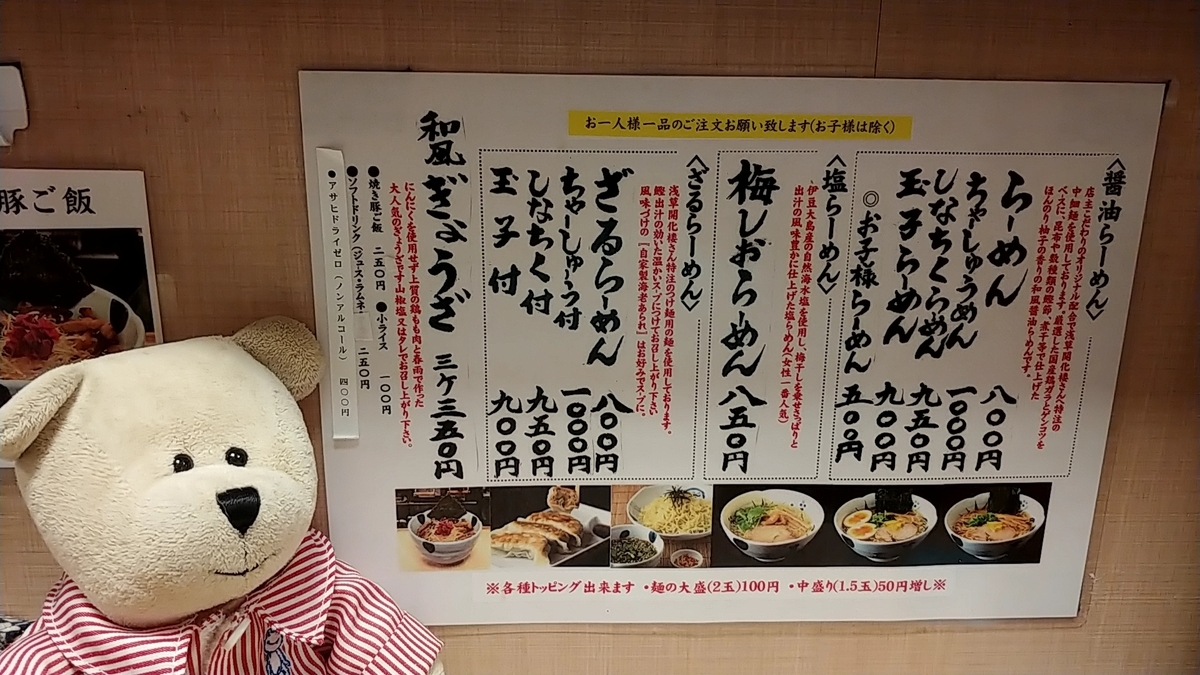 お一人様一品のご注文お願い致します(お子様は除く)
〈醤油らーめん〉
店主こだわりのオリジナル配合で浅草開化楼さんへ特注の
中細麺を使用しております。厳選した国産鶏ガラとゲンコツを
ベースに、昆布や数種類の鰹節、煮干等で仕上げた
ほんのり柚子の香りの和風醤油らーめんです。
らーめん 八〇〇円
ちゃーしゅうめん 一〇〇〇円
しなちくらーめん 九五〇円
玉子らーめん 九〇〇円
◎お子様らーめん 五〇〇円
〈塩らーめん〉
伊豆大島産の自然海水塩を使用し、梅干しを乗せさっぱりと
出汁の風味豊かに仕上げた塩らーめん(女性一番人気)
梅しおらーめん 八五〇円
〈ざるらーめん〉
浅草開化楼さん特注のつけ麺用の麺を使用しております。
鰹出汁の効いた温かいスープにつけてお召し上がり下さい
風味づけの「自家製海老あられ」はお好みでスープに。
ざるらーめん 八〇〇円
ちゃーしゅーう付 一〇〇〇円
しなちく付 九五〇円
玉子付 九〇〇円
和風ぎょうざ 三ケ三五〇円
にんにくを使用せず上質の鶏もも肉と春雨で作った
大人気のぎょうざです山椒塩又はタレでお召し上がり下さい。
●焼き豚ご飯 二五〇円 ●小ライス 一〇〇円
●ソフトドリンク(ジュース・ラムネ) 二五〇円
●アサヒドライゼロ(ノンアルコール) 四〇〇円
※各種トッピング出来ます ・麺の大盛(2玉)100円 ・中盛り(1.5玉)50円増し※
豚ご飯